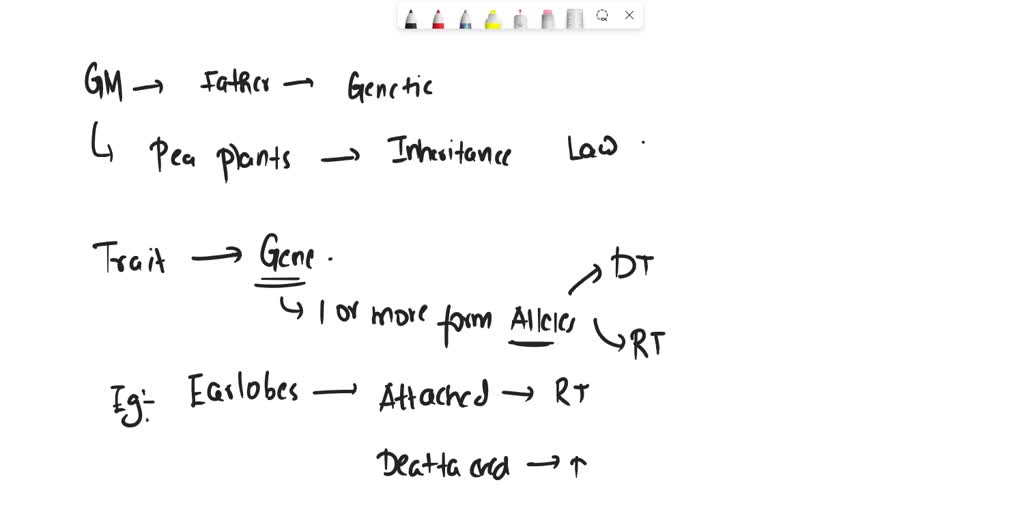 GM → Father → Genetic
↳ Pea plants → Inheritance Law .
Trait → Gene .
DT
↳ 1 or more form Alleles
RT
Eg:- Earlobes → Attached → RT
Deattaced →